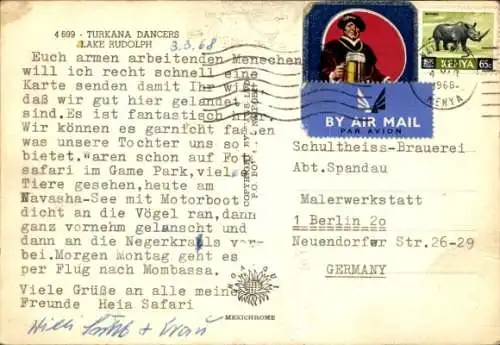 4699 - TURKANA DANCERS
LAKE RUDOLPH
3.3.68
Euch armen arbeitenden Menschen
will ich recht schnell eine
Karte senden damit Ihr wi
daß wir gut hier gelandet
sind. Es ist fantastisch hi
Wir können es garnicht fa en
was unsere Tochter uns so
bietet. Waren schon auf Fo
safari im Game Park, viel
Tiere gesehen, heute am
Navasha-See mit Motorboot
dicht an die Vögel ran, dann
ganz vornehm gelanscht und
dann an die Negerkralls vor-
bei. Morgen Montag geht es
per Flug nach Mombassa.
Viele Grüße an alle meine
Freunde Heia Safari
Willi + Frau
COPYRIGHT BY
P.O. BOX
MEXICHROME
KENYA 65c
1968
KENYA
BY AIR MAIL
PAR AVION
Schultheiss-Brauerei
Abt. Spandau
Malerwerkstatt
1 Berlin 2o
Neuendorfer Str. 26-29
GERMANY